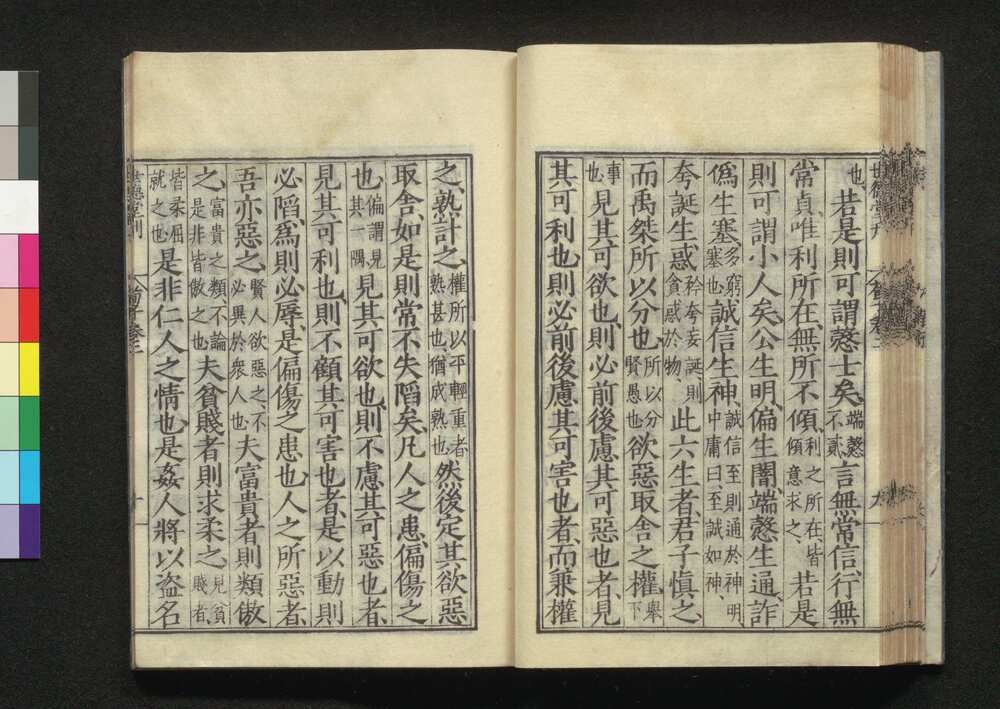 也若是則可謂愨士矣端愨不貳言無常信行無
常貞唯利所在無所不傾利之所在皆傾意求之若是
則可謂小人矣公生明偏生闇端愨生通詐
僞生塞多窮塞也誠信生神誠信至則通於神明中庸曰至誠如神
夸誕生惑矜夸妄誕則貪惑於物此六生者君子愼之
而禹桀所以分也所以分賢愚也欲惡取舍之權舉下
事也見其可欲也則必前後慮其可惡也者見
其可利也則必前後慮其可害也者而兼權
之孰計之權所以平輕重者熟甚也猶成熟也然後定其欲惡
取舍如是則常不失陷矣凡人之患偏傷之
也偏謂見其一隅見其可欲也則不慮其可惡也者
見其可利也則不顧其可害也者是以動則
必陷爲則必辱是偏傷之患也人之所惡者
吾亦惡之賢人欲惡之不必異於衆人也夫富貴者則類傲
之富貴之類不論是非皆傲之也夫貧賤者則求柔之見貧賤者
皆柔屈就之也是非仁人之情也是姦人將以盜名